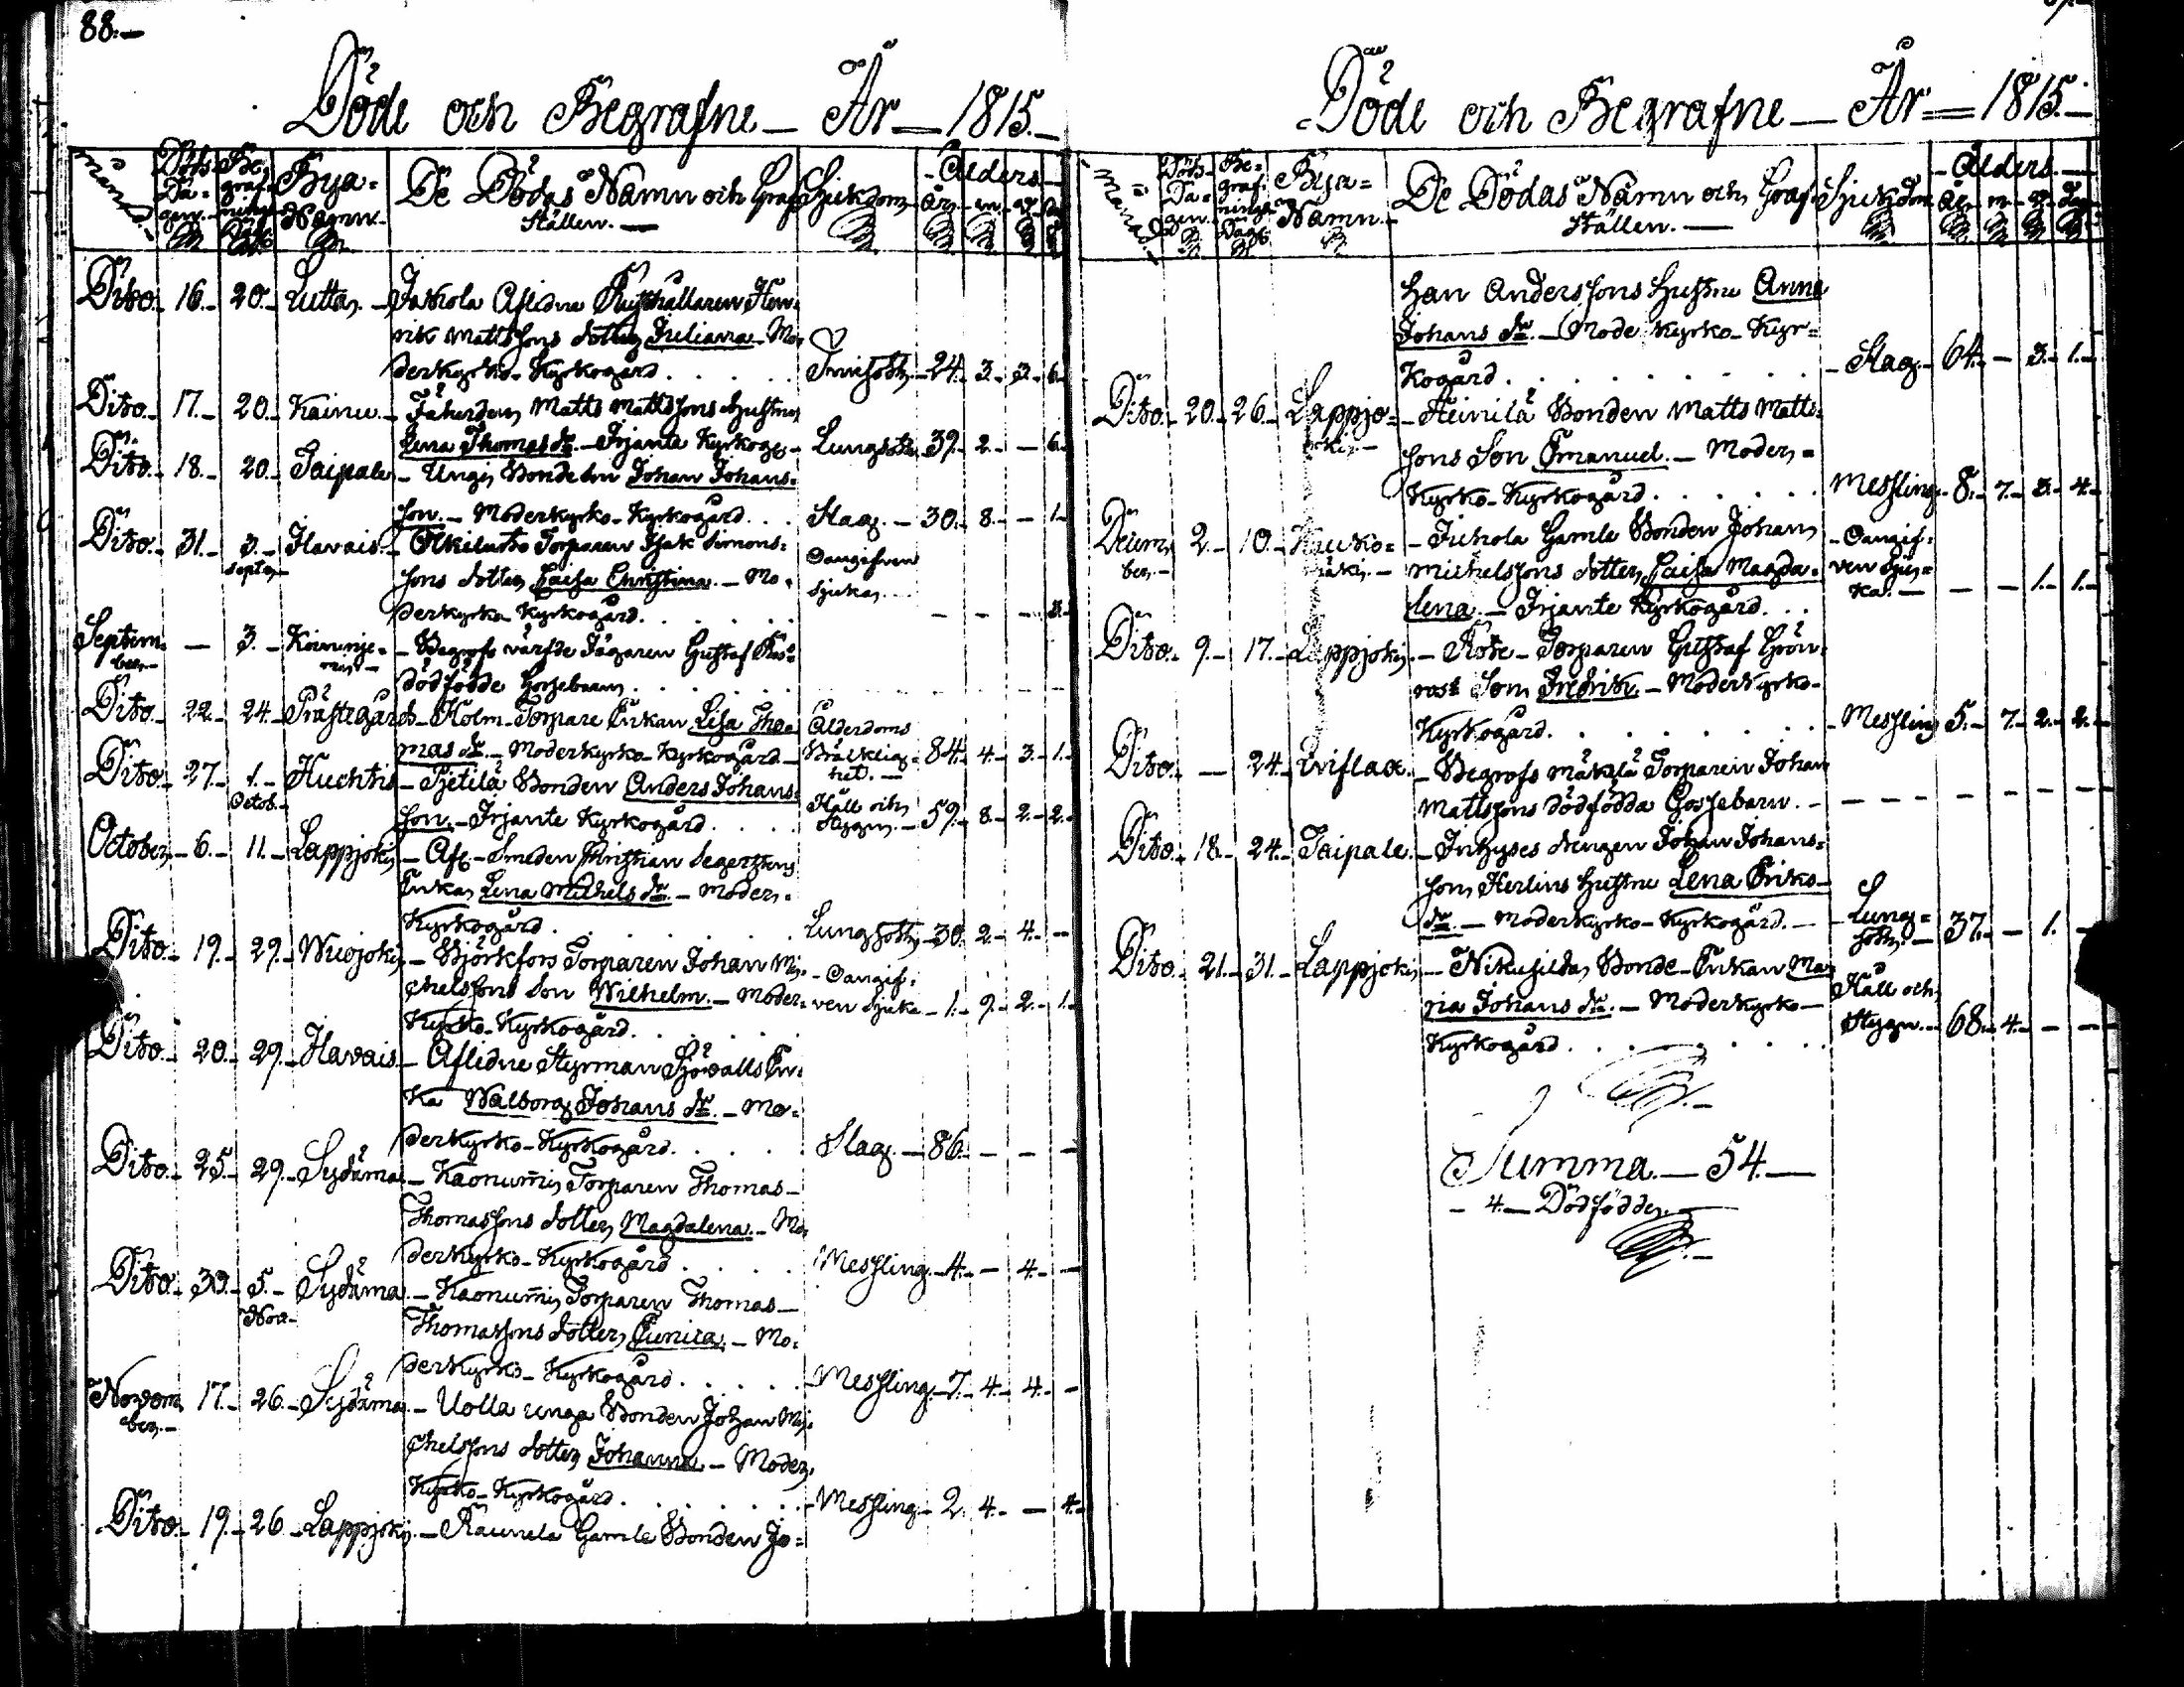 88.–
Döde och Begrafne – År – 1815.–
Månad.– Döds Dagen.– Begrafnings Dag. Bya= Namn.– De Dödas Namn och Graf Sjukdom. Ålders
Ställen. — år.– m.– v.– dag
Dito.– 16.– 20.– Lutta.– Jaakola Aflidne Rusthållaren Hen=
rik Mattssons dotter Juliana.– Mo=
derkyrko–Kyrkogård. . . . . Tvinsot.– 24.– 3.– 3.– 6.–
Dito.– 17.– 20.– Kainu.– Fäherden Matts Mattssons Hustru
Lena Thomas dr.– Irjante Kyrkog.– Lungsot.– 39.– 2.– – 6.–
Dito.– 18.– 20.– Taipale.– Ungi Bonde Son Johan Johans=
son.– Moderkyrko–Kyrkogård. . . Slag.– 30.– 8.– – 1.–
Dito.– 31.– 3.– Septem Ilavais.– Olkiluoto Torparen Isak Simons=
sons dotter Caisa Christina.– Mo= Oangifven
derkyrko Kyrkogård. . . . . sjuka.– – – – 3.–
Septem= ber.– — 3.– – Begrofs värfde Jägaren Gustaf
dödfödde Gossebarn. . . . .
Dito.– 22.– 24.– Prästegård.– Holm–Torpare Enkan Lisa Tho= Ålderdoms
mas dr.– Moderkyrko–Kyrkogård.– Bräcklig= het.– 84.– 4.– 3.– 1.–
Dito.– 27.– 1.– Octob.– Huchtis.– Pietilä Bonden Anders Johans=
son.– Irjante Kyrkogård. . . . Håll och Stygn.– 59.– 8.– 2.– 2.–
October.– 6.– 11.– Lappjoki.– Afl.–Smeden Christian Segerstens
Enka Lena Michels dr.– Moder=
Kyrkogård. . . . . . Lungsot.– 30.– 2.– 4.– –
Dito.– 19.– 29.– Wuojoki.– Björkfors Torparen Johan Mi=
chelssons Son Wilhelm.– Moder= – Oangif= ven sjuka – 1.– 9.– 2.– 1.–
Kyrko–Kyrkogård. . . . .
Dito.– 20.– 29.– Ilavais.– Aflidne Styrman Sjövalls En=
ka Walborg Johans dr.– Mo=
derkyrko–Kyrkogård. . . . . Slag.– 86.– – – –
Dito.– 25.– 29.– Sydänma.– Kaonum̄i Torparen Thomas
Thomassons dotter Magdalena.– Mo=
derkyrko–Kyrkogård . . . . Messling.– 4.– – 4.– –
Dito.– 30.– 5.– Nov.– Sydänma.– Kaonum̄i Torparen Thomas
Thomassons dotter Eunica.– Mo=
derkyrko–Kyrkogård . . . . . Messling.– 7.– 4.– 4.– –
Novem= ber.– 17.– 26.– Sydänma.– Uolla unga Bonden Johan Mi=
chelssons dotter Johanna.– Moder=
Kyrko–Kyrkogård. . . . . . Messling.– 2. 4.– – 4.–
Dito.– 19.– 26.– Lappjoki.– Raunela Gamle Bonden Jo=
Döde och Begrafne – År – 1815.–
Månad.– Döds Dagen.– Begrafnings Dag. Bya= Namn.– De Dödas Namn och Graf= Sjukdom – Ålders.
Ställen.– år.– m.– v.– dag
han Anderssons Hustru Anna
Johans dr.– Mode Kyrko–Kyr=
Kogård. . . . . . . . – Slag.– 64.– – 3.– 1.–
Dito.– 20.– 26.– Lappjo= ki.– – Heinilä Bonden Matts Matts=
sons Son Emanuel.– Moder=
Kyrko–Kyrkogård. . . . . . Messling.– 8.– 7.– 3.– 4.–
Decem= ber.– 2.– 10.– – Juhola Gamle Bonden Johan – Oangif=
Michelssons dotter Caisa Magda= ven sju=
lena.– Irjante Kyrkogård. . . ka.– – – 1.– 1.–
Dito.– 9.– 17.– Lappjoki.– Rote–Torparen Gustaf Grön=
roos Son Fredrik.– Moderkyrko–
Kyrkogård. . . . . . . . – Messling 5.– 7.– 2.– 2.–
Dito.– – 24.– Eviflax.– Begrofs Mäkilä Torparen Johan
Mattssons dödfödda Gossebarn.– – – – – –
Dito.– 18.– 24.– Taipale.– Inhyses drengen Johan Johans=
son Herlins Hustru Lena Eriks–
dr.– Moderkyrko–Kyrkogård.– – Lung= sot.– 37.– – 1. –
Dito.– 21.– 31.– Lappjoki.– Bonde–Enkan Ma=
ria Johans dr.– Moderkyrko– Håll och
Kyrkogård. . . . . . . . Stygn.– 68.– 4.– – –
Summa.– 54.–
– 4.– Dödfödde.–